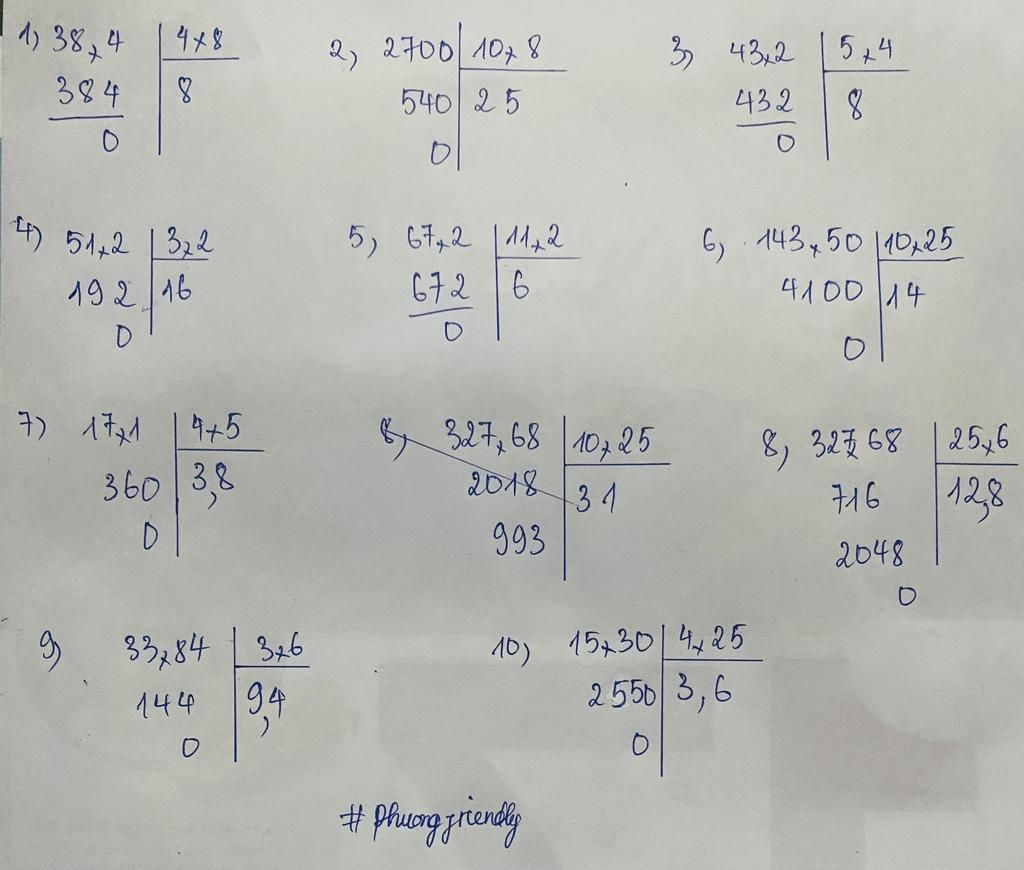 1) 38,4 4,8
384 8
0
2, 2700 10,8
540 25
0
3, 43,2 5,4
432 8
0
4) 51,2 3,2
192 16
0
5, 67,2 11,2
672 6
0
6, 143,50 10,25
4100 14
0
7) 17,1 4,5
360 3,8
0
8, 327,68 10,25
2018 31
993
8, 327,68 25,6
716 12,8
2048
0
9) 33,84 3,6
144 9,4
0
10) 15,30 4,25
2550 3,6
0
# phuongfriendly